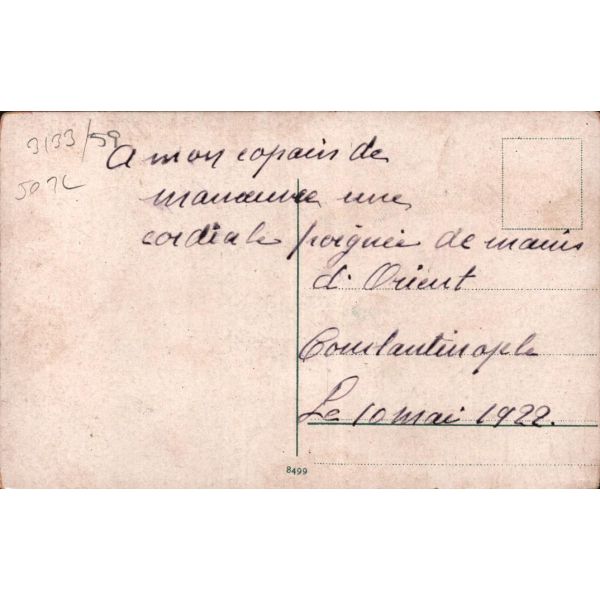 3133/59
50TL
A mon copain de
manœuvre une
cordiale poignée de mains
d'Orient
Constantinople
Le 10 mai 1922.
8499